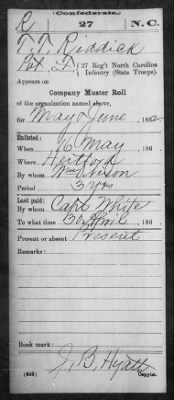 Confederate.
R 27 N.C.
T. T. Riddick
Pvt, Co. F, 27 Reg't North Carolina
Infantry (State Troops).
Appears on
Company Muster Roll
of the organization named above,
for May & June, 1862
Enlisted:
When 16 May, 186
Where Hertford
By whom Wm Nixon
Period 3 yrs
Last paid:
By whom Capt White
To what time 30 April, 186
Present or absent Present
Remarks:
Book mark:
J. B. Hyatt
Copyist.